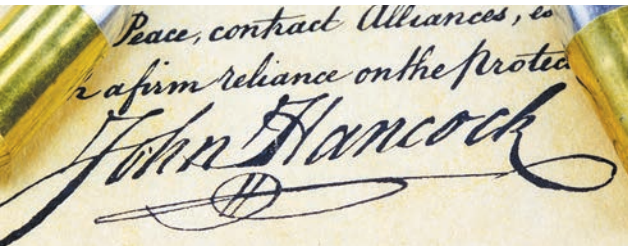 Peace, contract Alliances, es
h a firm reliance on the protec
John Hancock